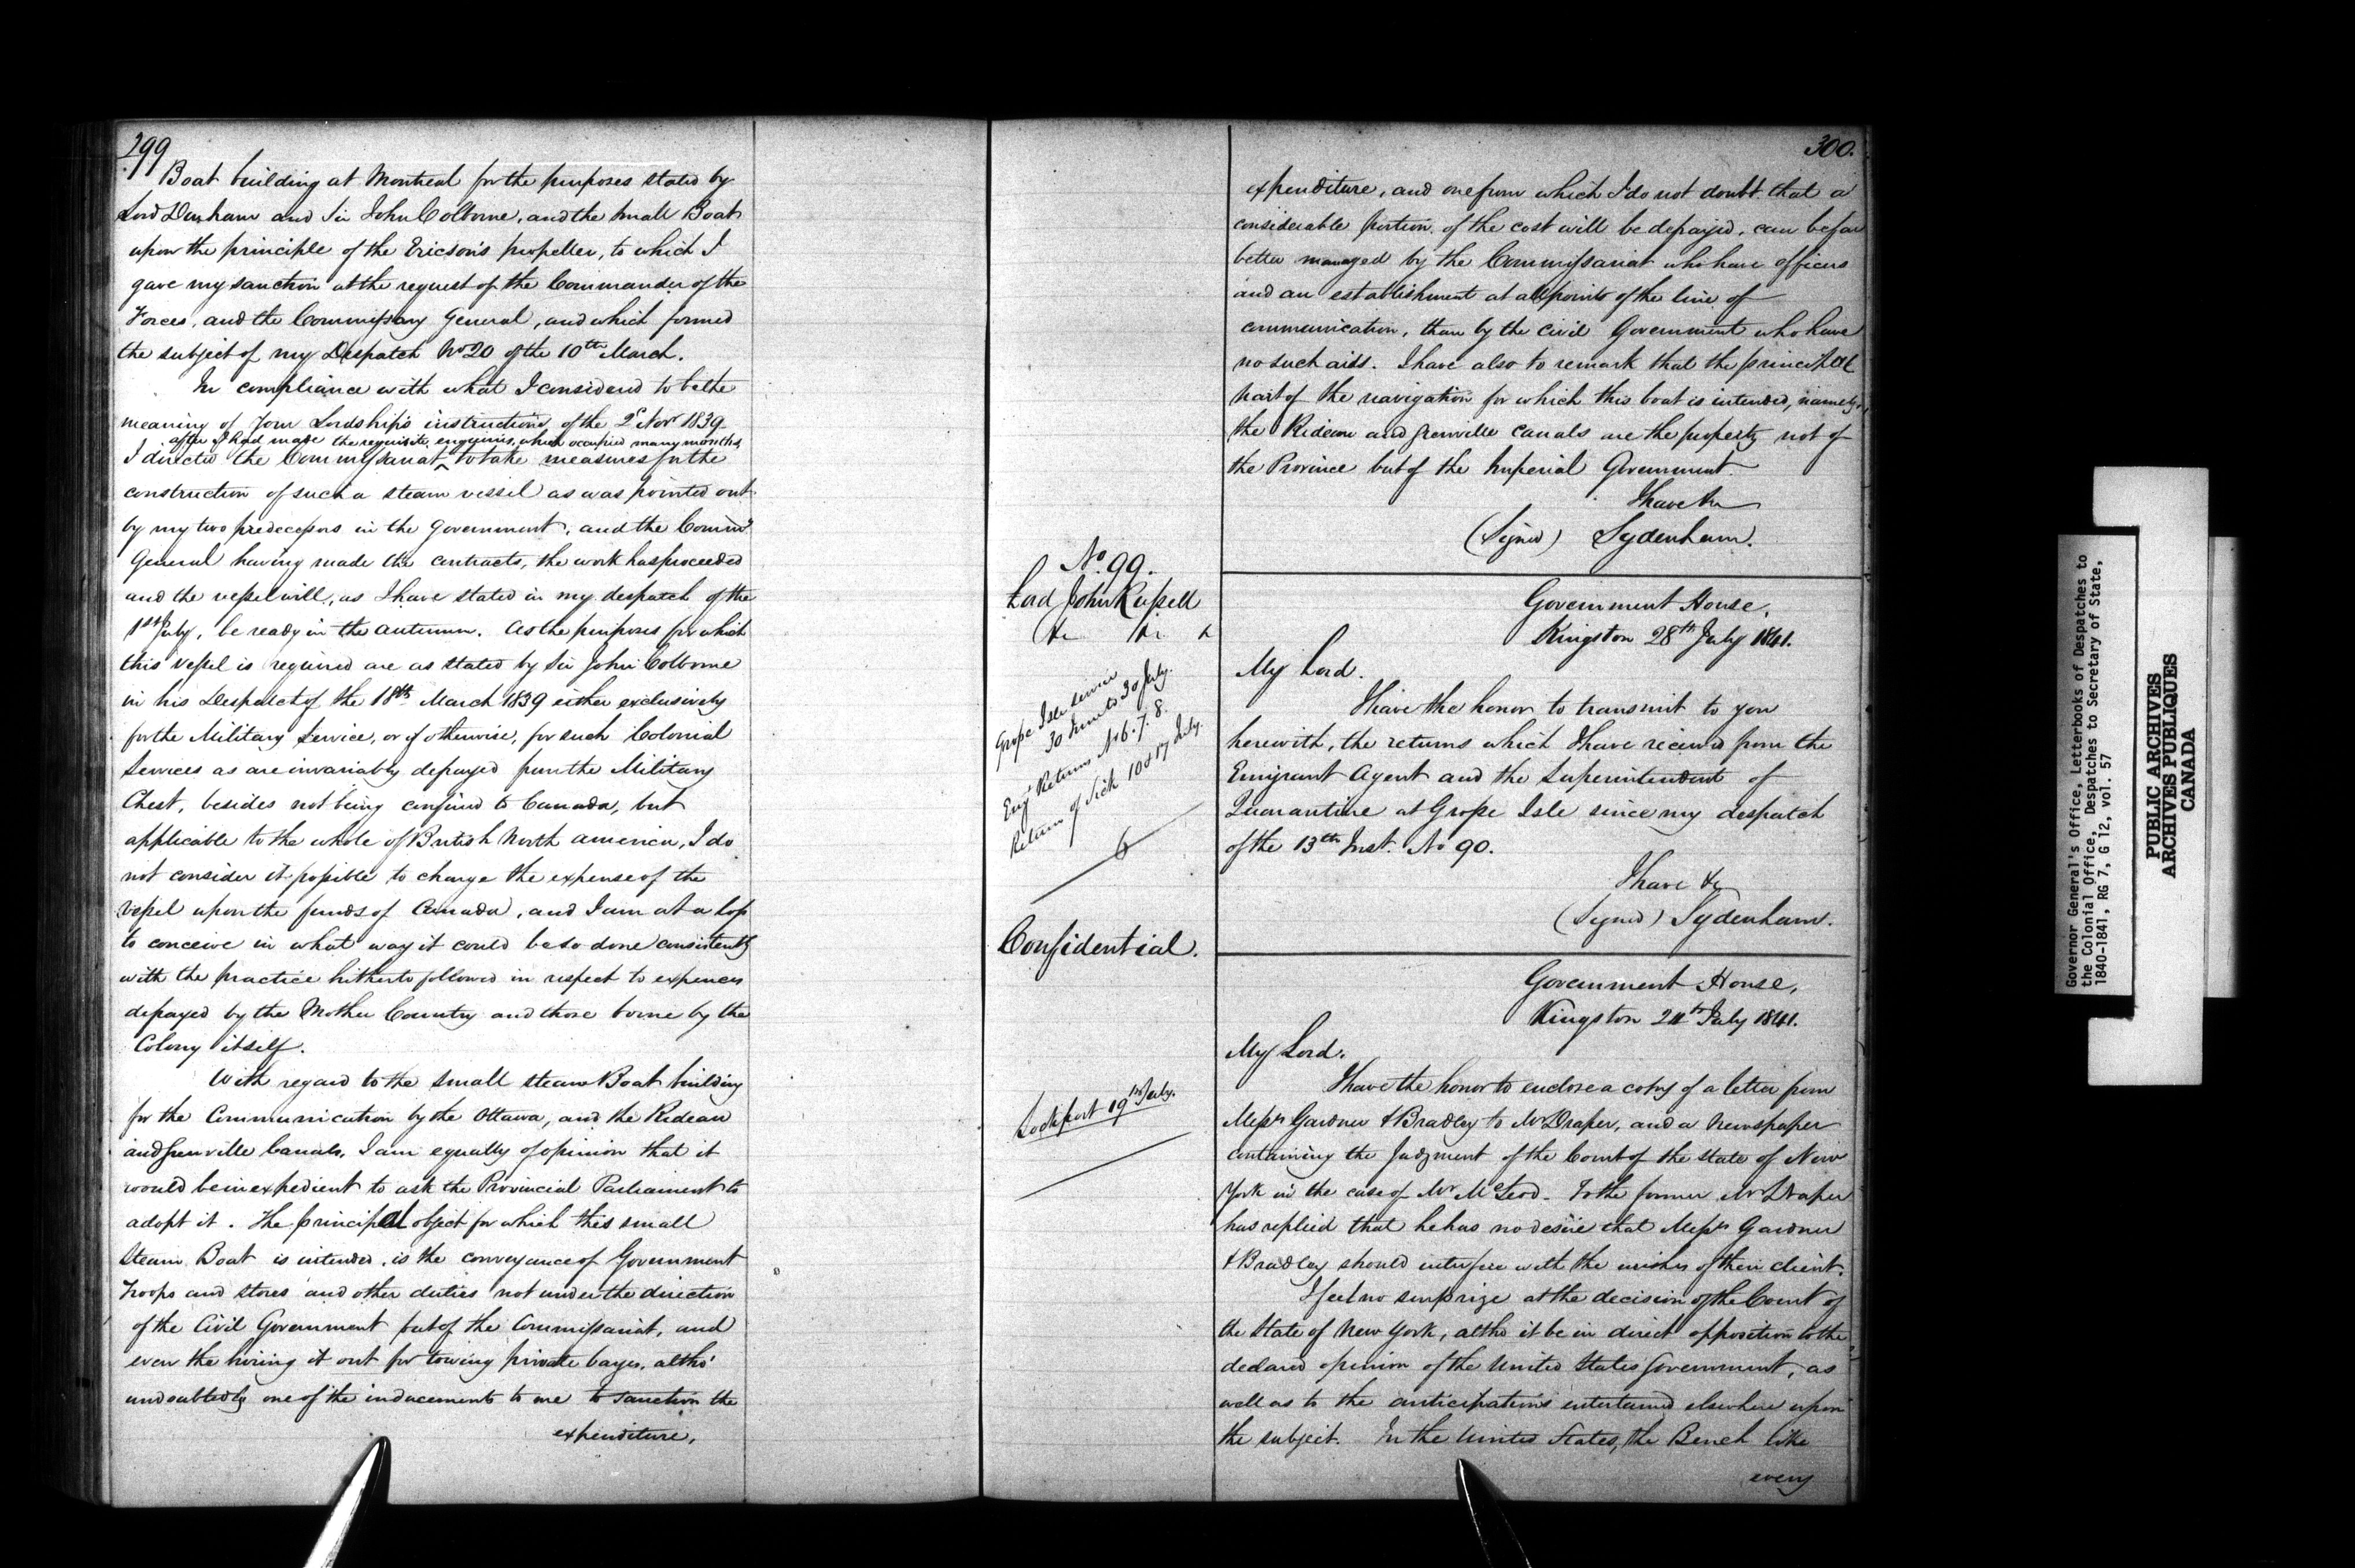 299
Boat building at Montreal for the purposes stated by
Lord Durham and Sir John Colborne, and the small Boat
upon the principle of the Ericson's propeller, to which I
gave my sanction at the request of the Commander of the
Forces, and the Commissary General, and which formed
the subject of my Despatch No 20 of the 10th March.
In compliance with what I considered to be the
meaning of Your Lordship's instructions of the 2d Novr 1839
after I had made the requisite enquiries, which occupied many months,
I directed the Commissariat ^ to take measures for the
construction of such a steam vessel as was pointed out
by my two predecessors in the Government, and the Commy
General having made the contracts, the work has proceeded
and the vessel will, as I have stated in my despatch of the
1st July, be ready in the autumn. As the purposes for which
this vessel is required are as stated by Sir John Colborne
in his Despatch of the 18th March 1839 either exclusively
for the Military Service, or if otherwise, for such Colonial
Services as are invariably defrayed from the Military
Chest, besides not being confined to Canada, but
applicable to the whole of British North America, I do
not consider it possible to charge the expense of the
Vessel upon the funds of Canada, and I am at a loss
to conceive in what way it could be so done consistently
with the practice hitherto followed in respect to expences
defrayed by the Mother Country and those borne by the
Colony itself.
With regard to the small steam Boat building
for the Communication by the Ottawa, and the Rideau
and Grenville Canals, I am equally of opinion that it
would be inexpedient to ask the Provincial Parliament to
adopt it. The principal object for which this small
Steam Boat is intended, is the conveyance of Government
Troops and stores and other duties not under the direction
of the Civil Government but of the Commissariat, and
even the hiring it out for towing private barges, altho'
undoubtedly one of the inducements to me to sanction the
expenditure,
300.
expenditure, and one from which I do not doubt that a
considerable portion of the cost will be defrayed, can be far
better managed by the Commissariat who have officers
and an establishment at all points of the line of
communication, than by the Civil Government who have
no such aids. I have also to remark that the principal
part of the navigation for which this boat is intended, namely,
the Rideau and Grenville canals are the property not of
the Province but of the Imperial Government.
I have &c
(Signed) Sydenham.
No 99.
Lord John Russell
&c &c &
Government House,
Kingston 28th July 1841.
My Lord.
Grosse Isle Service
30 June to 30 July.
Emt Returns No 6. 7. 8.
Return of Sick 10 & 17 July.
6
I have the honor to transmit to you
herewith, the returns which I have received from the
Emigrant Agent and the Superintendent of
Quarantine at Grosse Isle since my despatch
of the 13th Inst. No 90.
I have &c
(Signed) Sydenham.
Confidential.
Government House,
Kingston July 1841.
My Lord.
Lockport 19th July.
I have the honor to enclose a copy of a letter from
Messrs Gardner & Bradley to Mr Draper, and a Newspaper
containing the Judgment of the Court of the State of New
York in the case of Mr McLeod. To the former Mr Draper
has replied that he has no desire that Messrs Gardner
& Bradley should interfere with the wishes of their client.
I feel no surprize at the decision of the Court of
the State of New York, altho it be in direct opposition to the
declared opinion of the United States Government, as
well as to the anticipations entertained elsewhere upon
the subject. In the United States, the Bench like
every
Governor General's Office, Letterbooks of Despatches to
the Colonial Office, Despatches to Secretary of State,
1840-1841, RG 7, G 12, vol. 57
PUBLIC ARCHIVES
ARCHIVES PUBLIQUES
CANADA